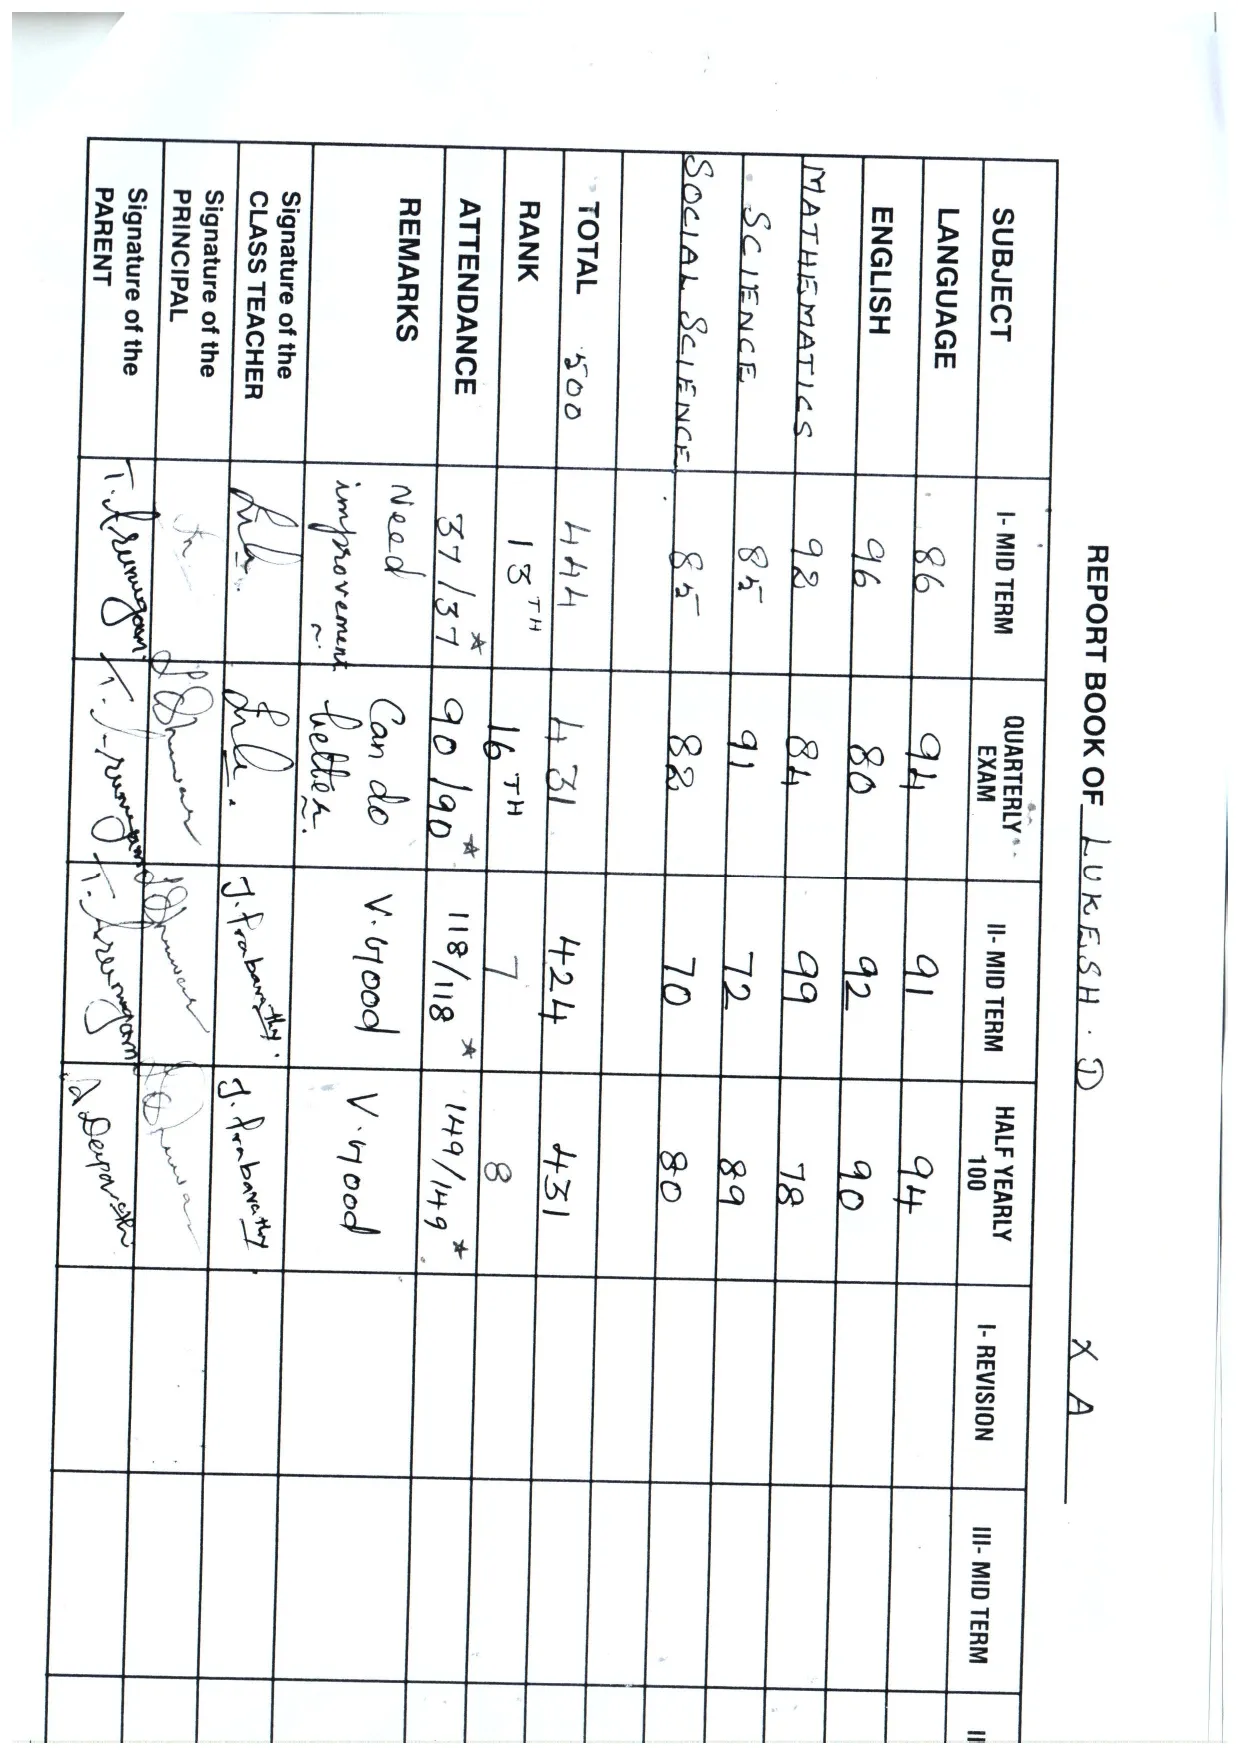 REPORT BOOK OF LUKESH . D X A
SUBJECT I- MID TERM QUARTERLY EXAM II- MID TERM HALF YEARLY 100 I- REVISION III- MID TERM II
LANGUAGE 86 94 91 94
ENGLISH 96 80 92 90
MATHEMATICS 92 84 99 78
SCIENCE 85 91 72 89
SOCIAL SCIENCE 85 82 70 80
TOTAL 500 444 431 424 431
RANK 13TH 16TH 7 8
ATTENDANCE 37/37* 90/90* 118/118* 149/149*
REMARKS Need improvement Can do better. V. Good V. Good
Signature of the CLASS TEACHER J. Prabavathy. J. Prabavathy
Signature of the PRINCIPAL
Signature of the PARENT T. Arumugam T. Arumugam T. Arumugam